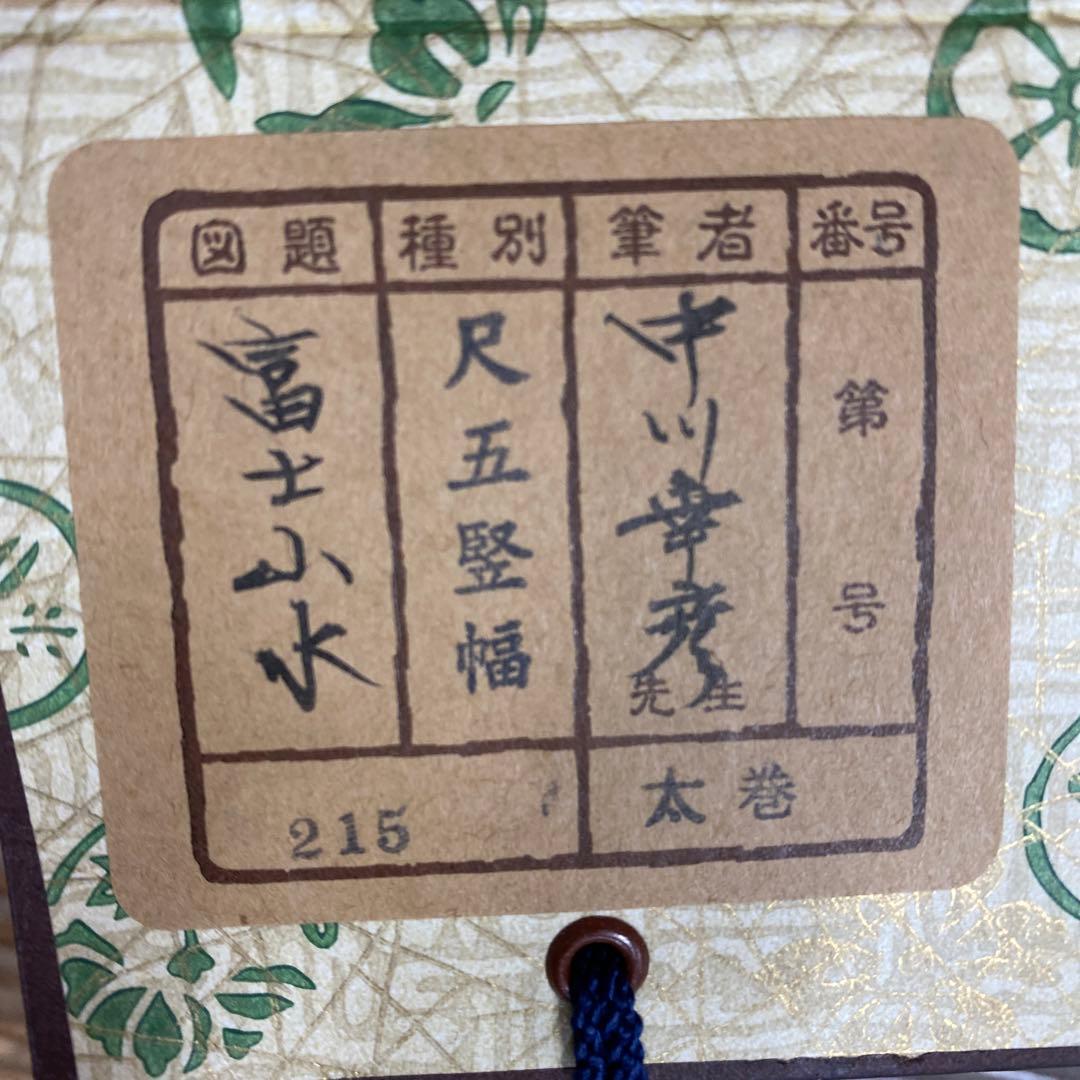 番号
第 号
筆者
中川幸彦
先生
種別
尺五竪幅
図題
富士山水
太巻
215